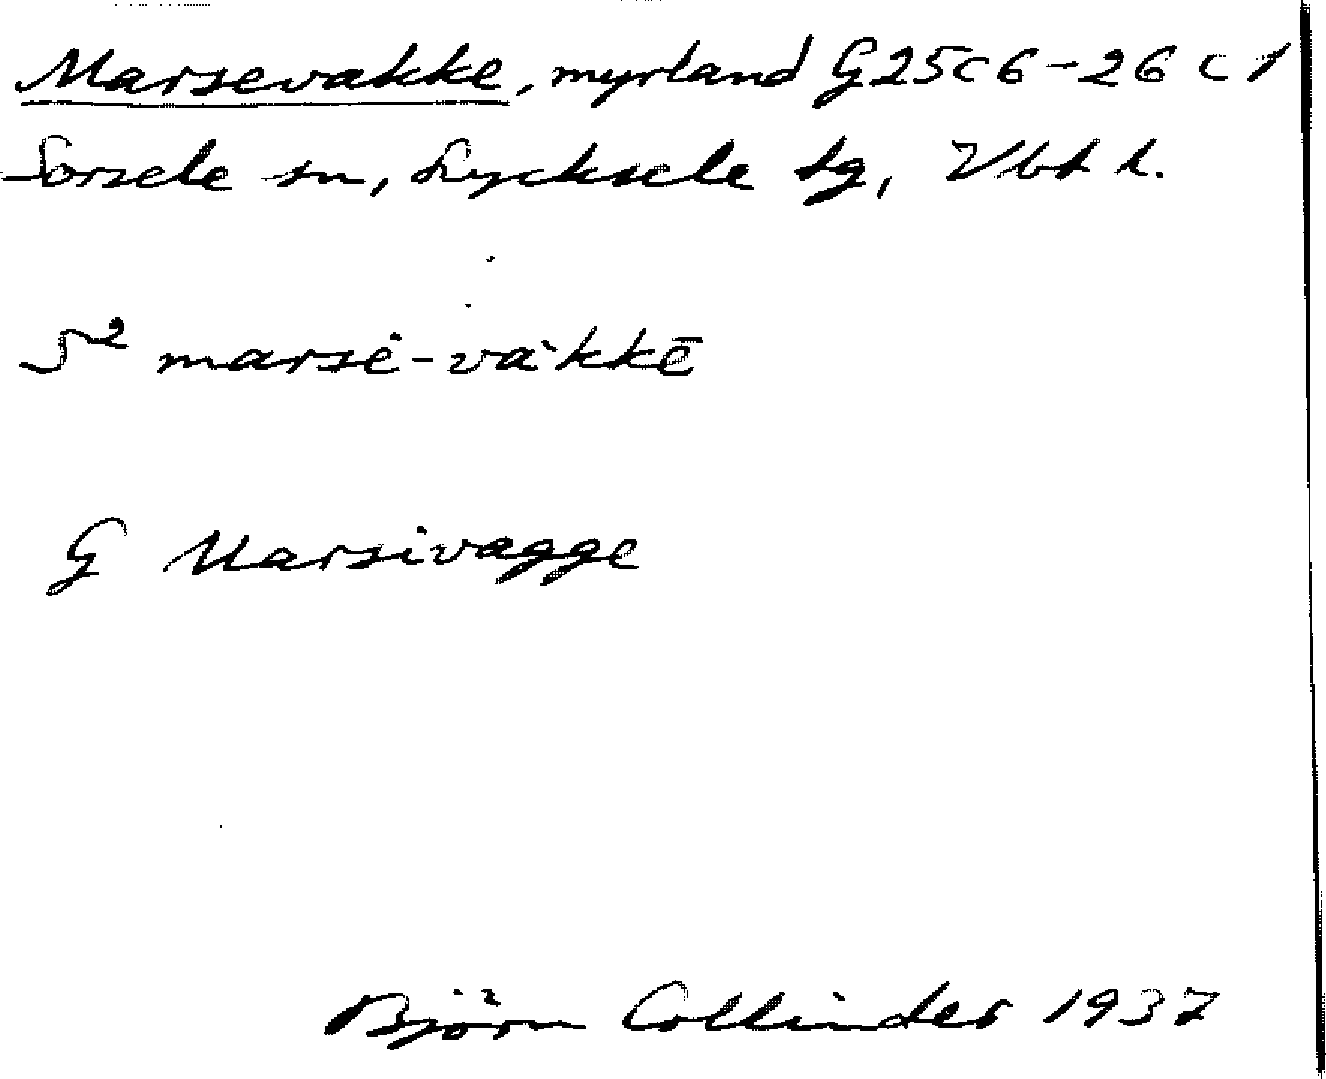 Marsevakke, myrland G25c6-26c1
Sorsele sn, Lycksele lg, Vbt l.
S² marsė-và'kkē
G Marsivagge
Björn Collinder 1937